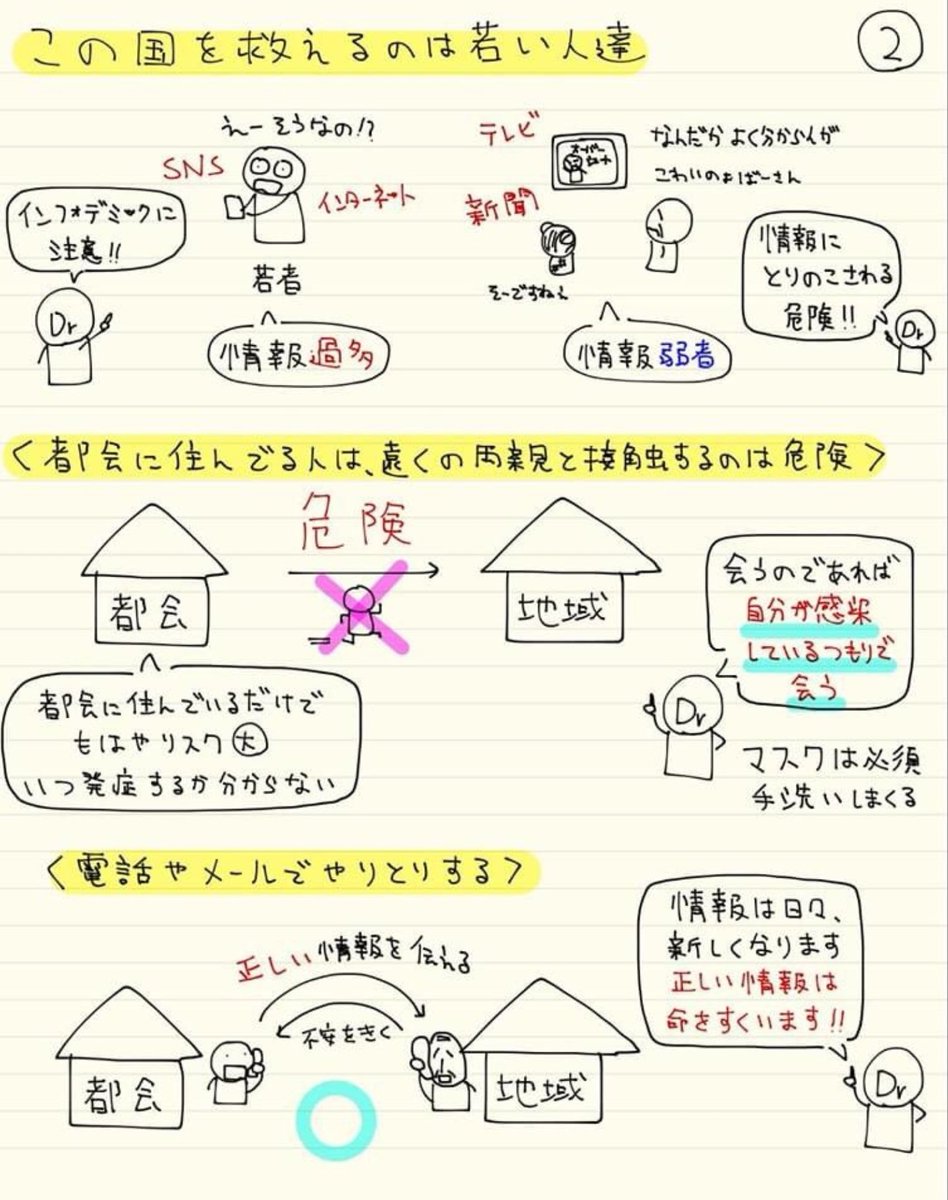 この国を救えるのは若い人達
2
えーそうなの!?
SNS
インターネット
若者
情報過多
インフォデミックに
注意!!
Dr
テレビ
オーバー
シュート
新聞
なんだかよく分からんが
こわいのぉばーさん
そーですねぇ
情報弱者
情報に
とりのこされる
危険!!
Dr
〈都会に住んでる人は、遠くの両親と接触するのは危険〉
都会
危険
地域
都会に住んでいるだけで
もはやリスク大
いつ発症するか分からない
会うのであれば
自分が感染
しているつもりで
会う
Dr
マスクは必須
手洗いしまくる
〈電話やメールでやりとりする〉
正しい情報を伝える
不安をきく
都会
地域
情報は日々、
新しくなります
正しい情報は
命をすくいます!!
Dr